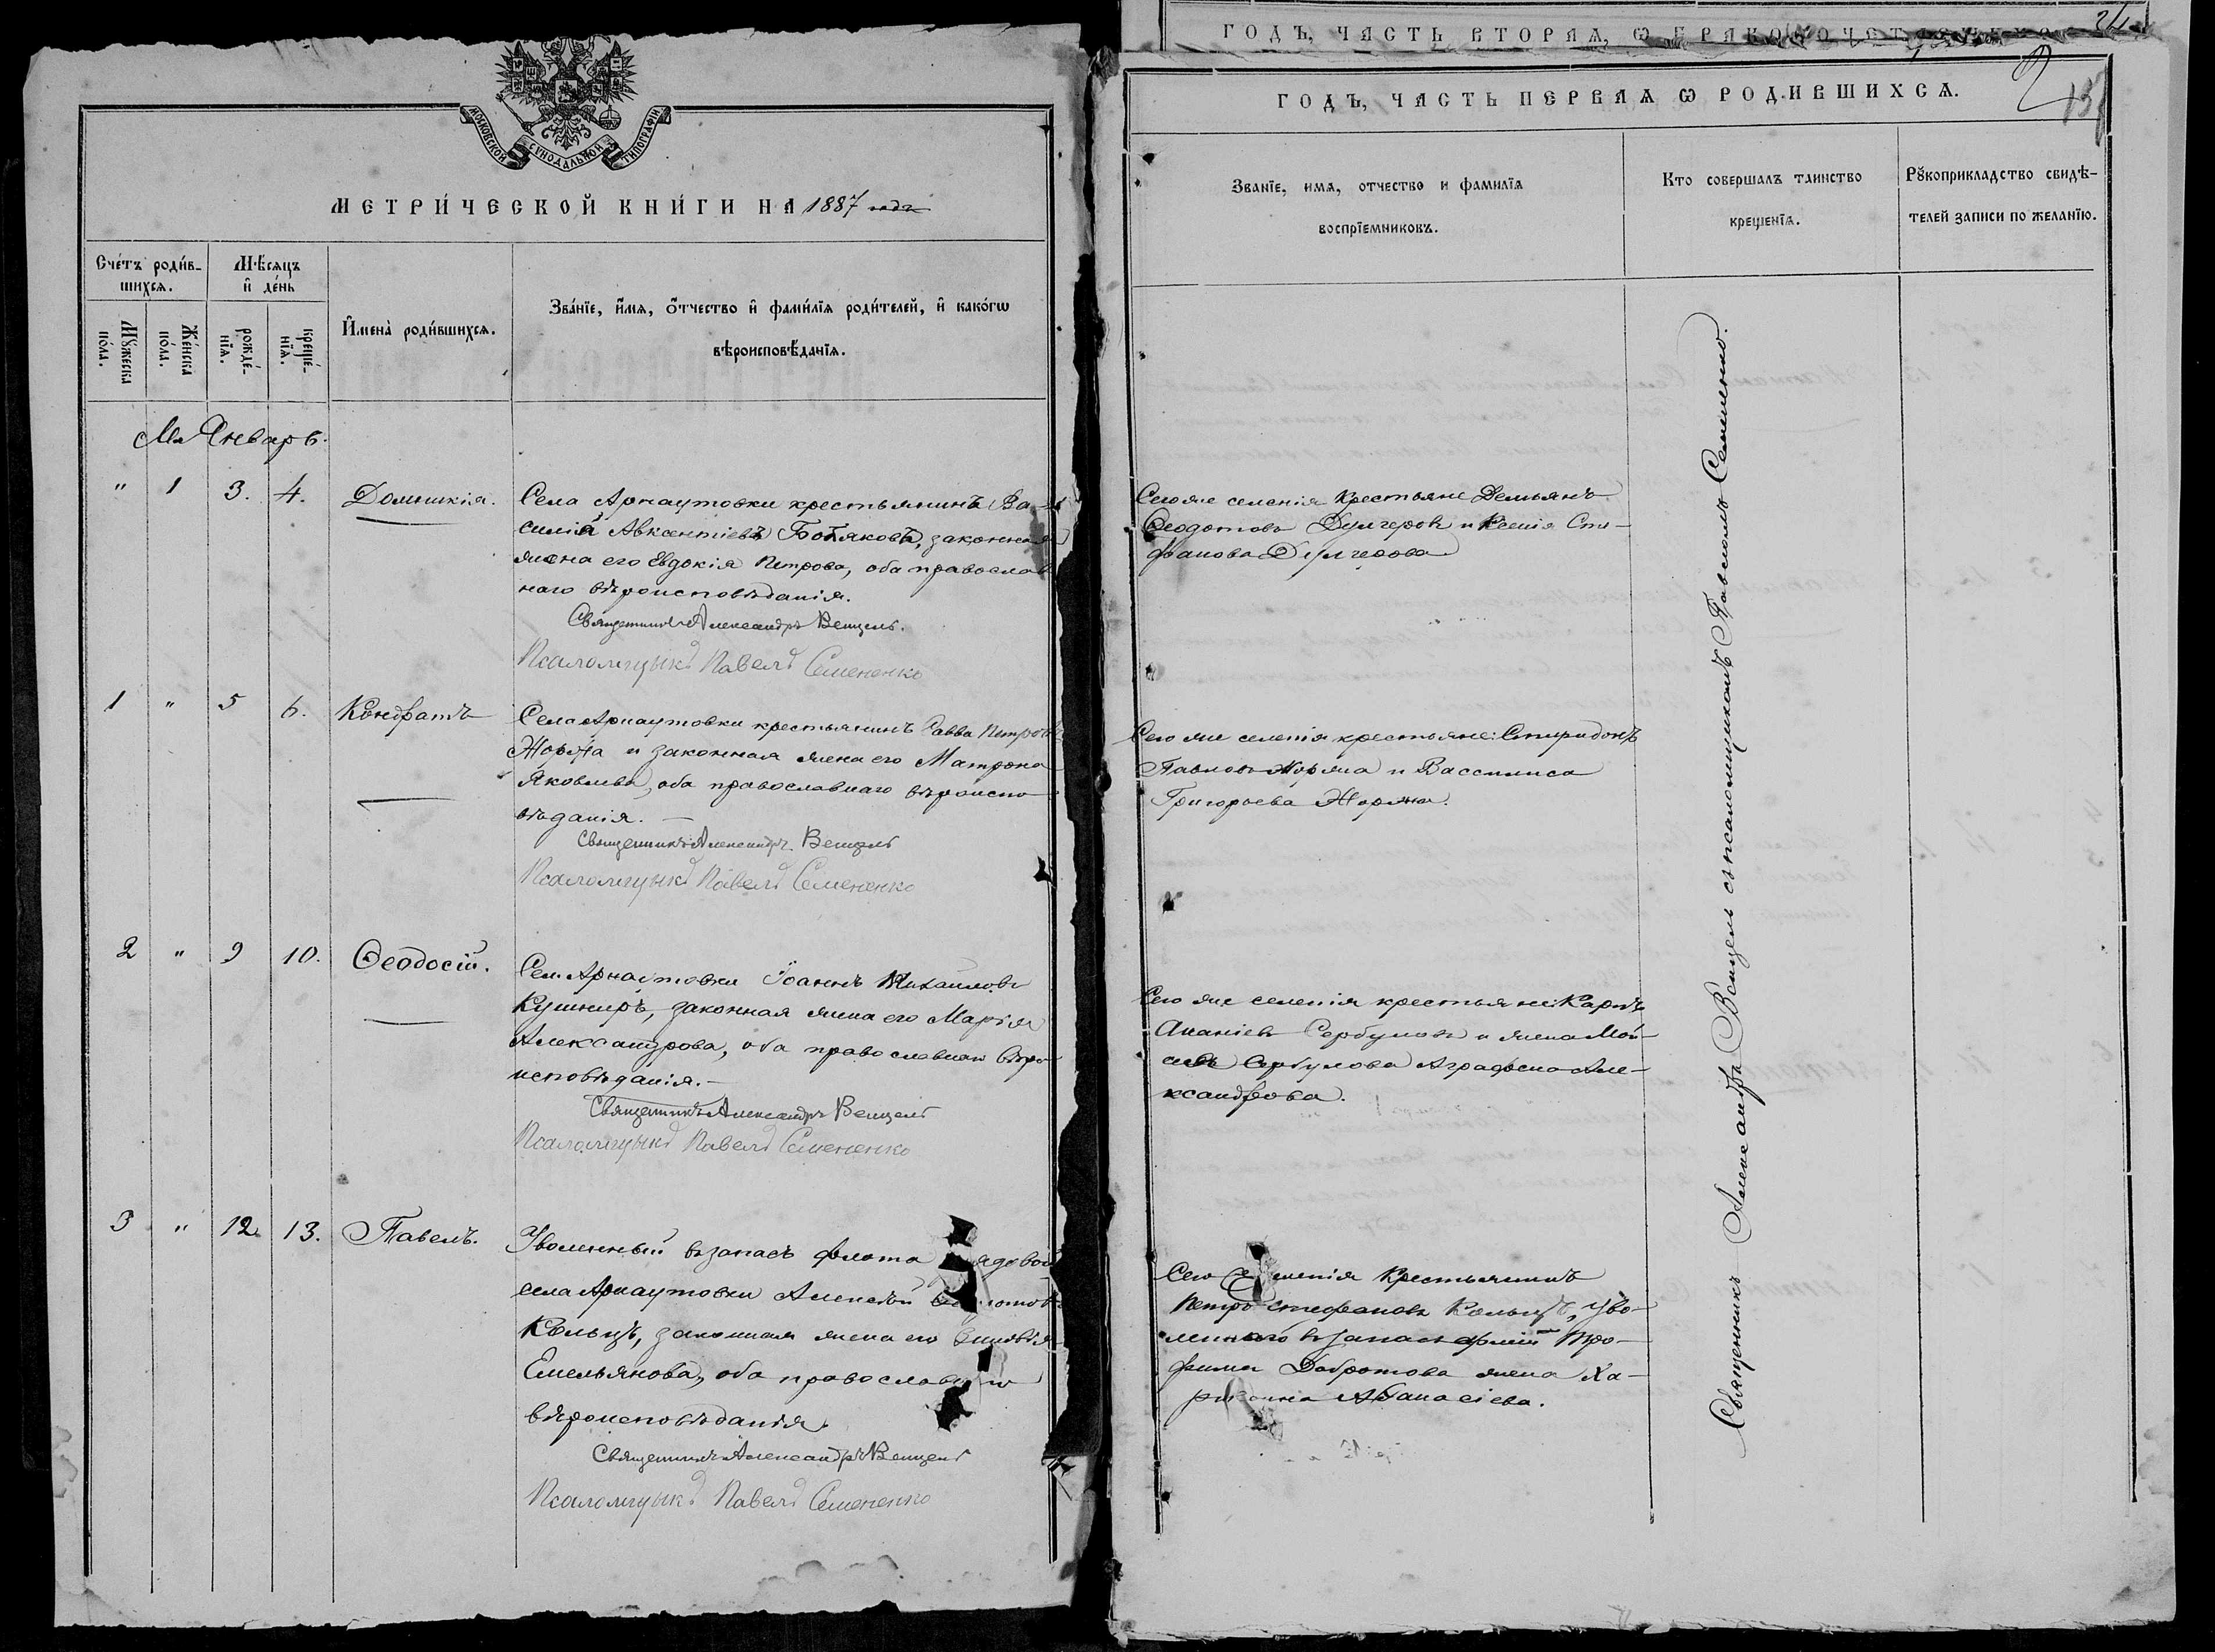 МОСКОВСКОЙ СѴНОДАЛЬНОЙ ТИПОГРАФІИ
МЕТРИ́ЧЕСКОЙ КНИ́ГИ НА 1887 годъ
Сче́тъ роди́в-
шихсѧ.
Мѣ́сѧцъ
и҆ де́нь
Мꙋ́жеска
по́ла.
Же́нска
по́ла.
рожде́-
нїѧ.
креще́-
нїѧ.
И҆мена̀ роди́вшихсѧ.
Зва́нїе, и҆́мѧ, о҆́тчество и҆ фами́лїѧ роди́телей, и҆ како́гѡ
вѣроисповѣ́данїѧ.
М-ць Январь.
" 1 3. 4. Домникія.
Села Арнаутовки крестьянинъ Ва-
силій Авксентіевъ Ботяковъ, законная
жена его Евдокія Петрова, оба православ
наго вѣроисповѣданія.
Священникъ Александръ Венцель.
Псаломщыкъ Павелъ Семененко
1 " 5 6. Кондратъ
Села Арнаутовки крестьянинъ Савва Петровъ
Жоржа и законная жена его Матрона
Яковлева, оба православнаго вѣроиспо
вѣданія. —
Священникъ Александръ Венцель
Псаломщыкъ Павелъ Семененко
2 " 9 10. Ѳеодосій.
Сел. Арнаутовки Іоаннъ Михайловъ
Кушниръ, законная жена его Марія
Александрова, оба православнаго вѣро-
исповѣданія. —
Священникъ Александръ Венцель
Псаломщыкъ Павелъ Семененко
3 " 12 13. Павелъ.
Уволенный въ запасъ флота рядовой
села Арнаутовки Алексѣй
Кольцъ, законная жена его Зиновія
Емельянова, оба православнаго
вѣроисповѣданія.
Священникъ Александръ Венцель
Псаломщыкъ Павелъ Семененко
ГОДЪ, ЧАСТЬ ВТОРАЯ, Ѡ БРАКОСОЧЕТАВШИХСЯ
ГОДЪ, ЧАСТЬ ПЕРВАЯ Ѡ РОДИВШИХСѦ.
2
Званїе, имѧ, отчество и фамилїѧ
воспрїемниковъ.
Кто совершалъ таинство
крещенїѧ.
Рꙋкоприкладство свидѣ-
телей записи по желанїю.
Сего же селенія крестьяне Демьянъ
Ѳеодотовъ Дулгеровъ и Ксенія Сте-
фанова Дулгерова
Сего же селенія крестьяне: Спиридонъ
Павловъ Жоржа и Вассилиса
Григорьева Жоржа.
Сего же селенія крестьяне: Карпъ
Ананіевъ Сербуловъ и жена Мои-
сея Сербулова Аграфена Але-
ксандрова.
Сего селенія крестьянинъ
Петръ Стефановъ Кольцъ, уво-
леннаго въ запасъ арміи Тро-
фима Добротова жена Ха-
ритина Аѳанасіева.
Священникъ Александръ Венцель съ псаломщикомъ Павломъ Семененко.